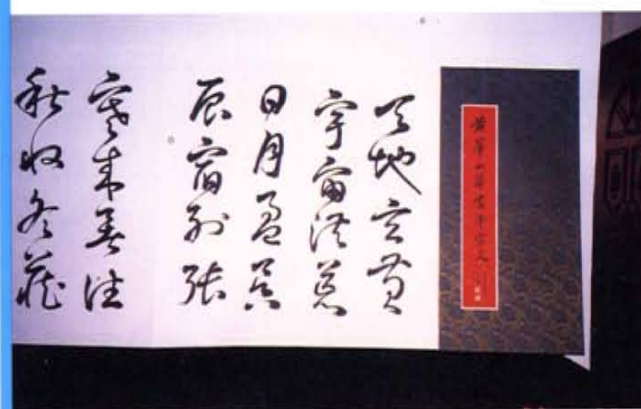 草书千字文
天地玄黄
宇宙洪荒
日月盈昃
辰宿列张
寒来暑往
秋收冬藏